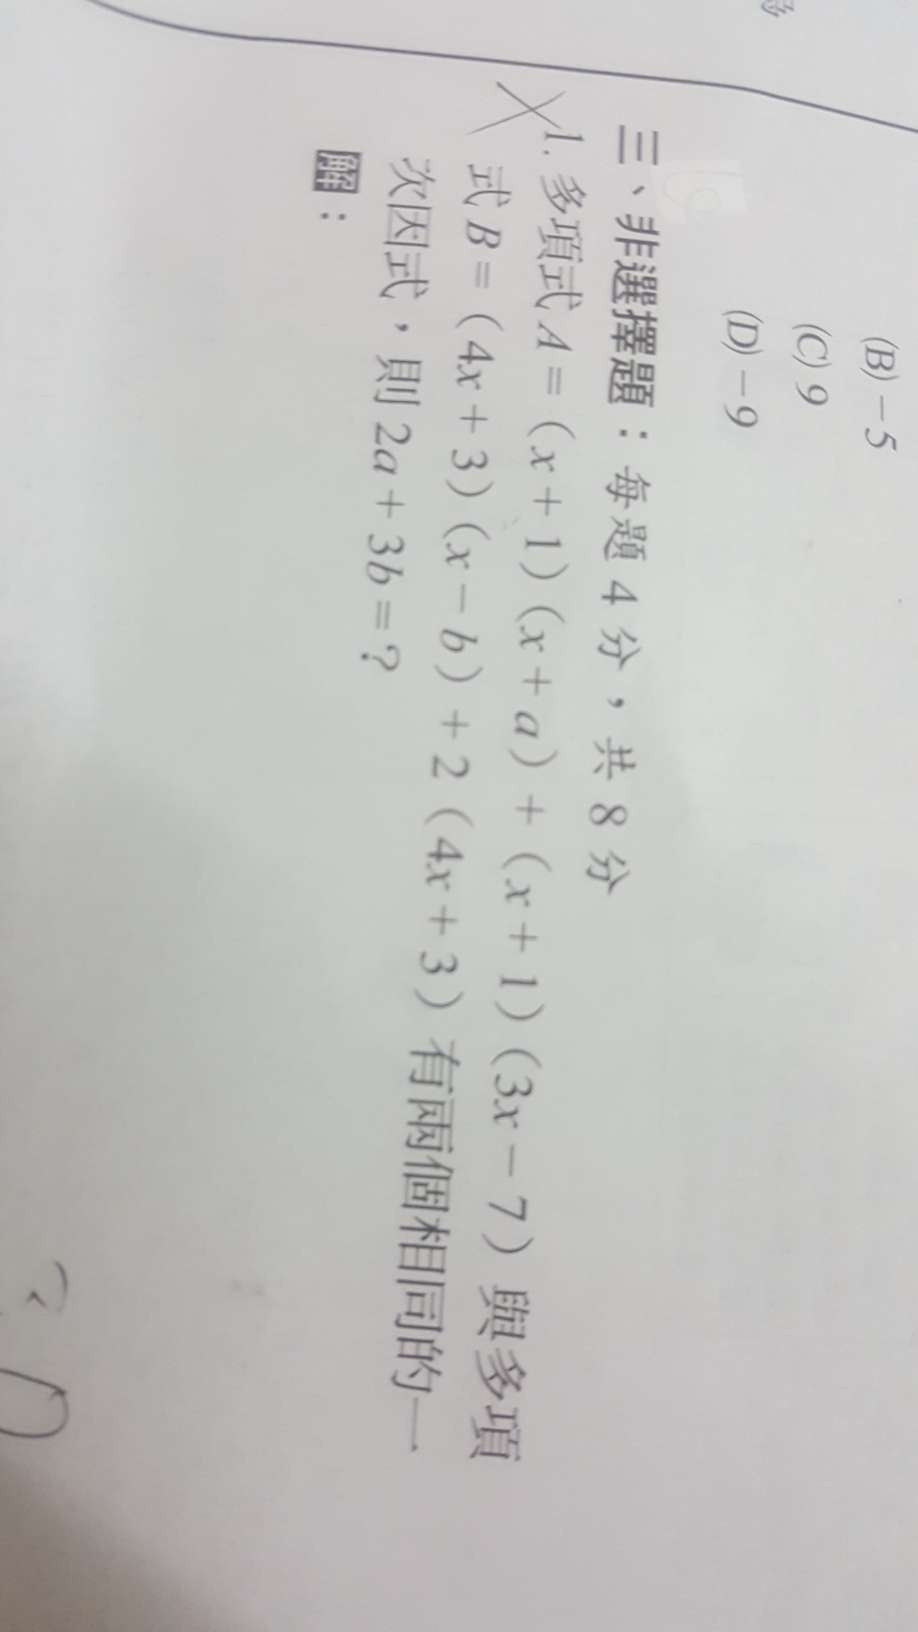 (B) －5
(C) 9
(D) －9
三、非選擇題：每題 4 分，共 8 分
1. 多項式 A＝(x＋1)(x＋a)＋(x＋1)(3x－7) 與多項
式 B＝(4x＋3)(x－b)＋2(4x＋3) 有兩個相同的一
次因式，則 2a＋3b＝？
解：